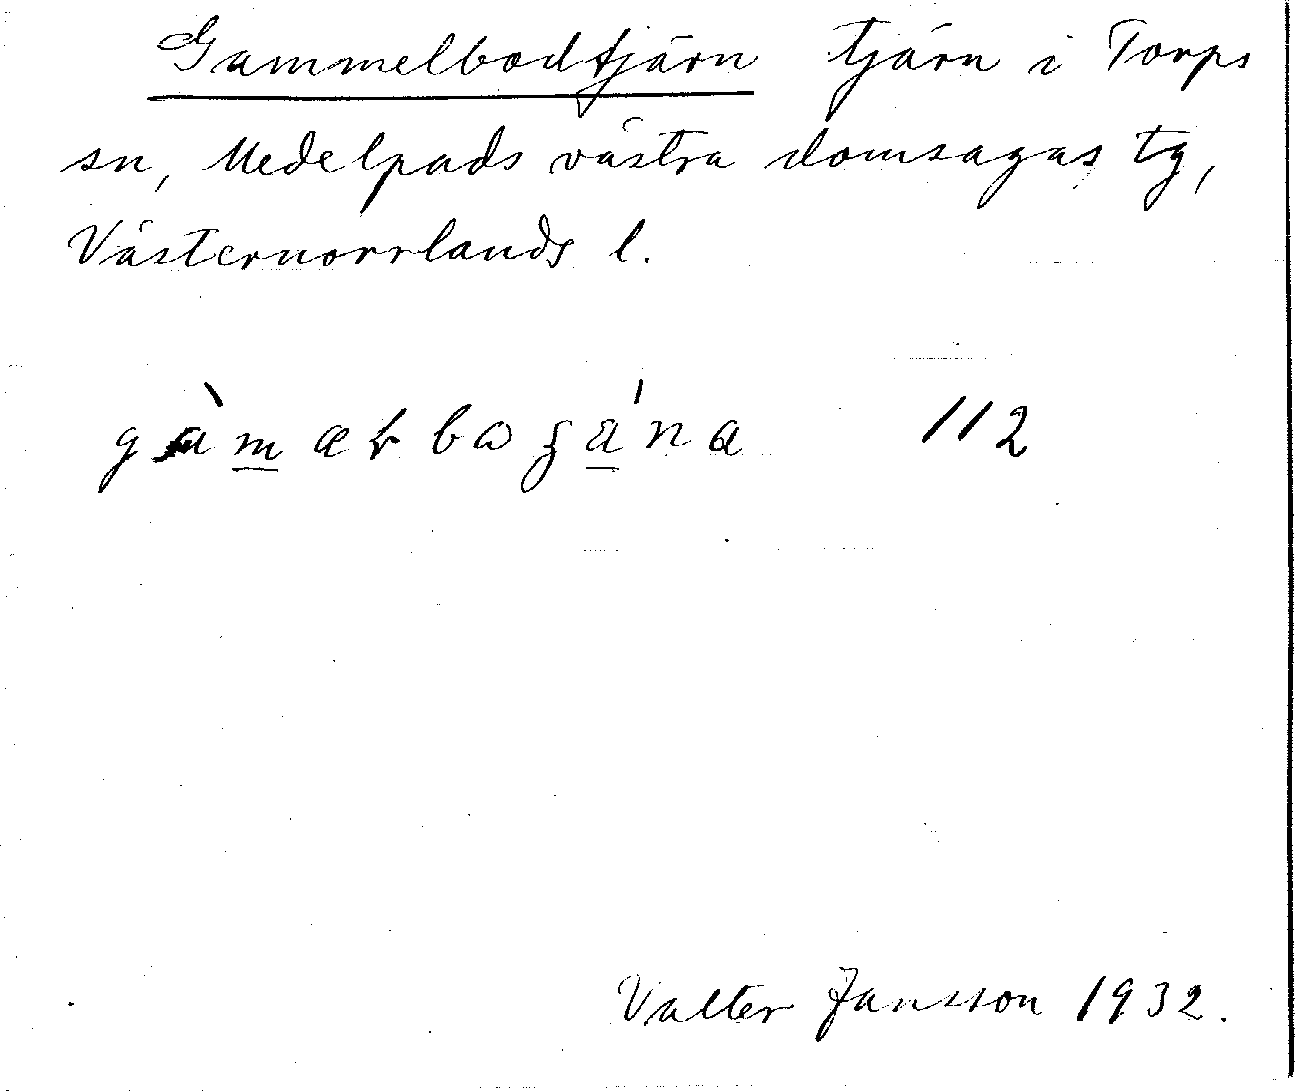 Gammelbodtjärn tjärn i Torps
sn, Medelpads västra domsagas tg,
Västernorrlands l.
112
Valter Jansson 1932.